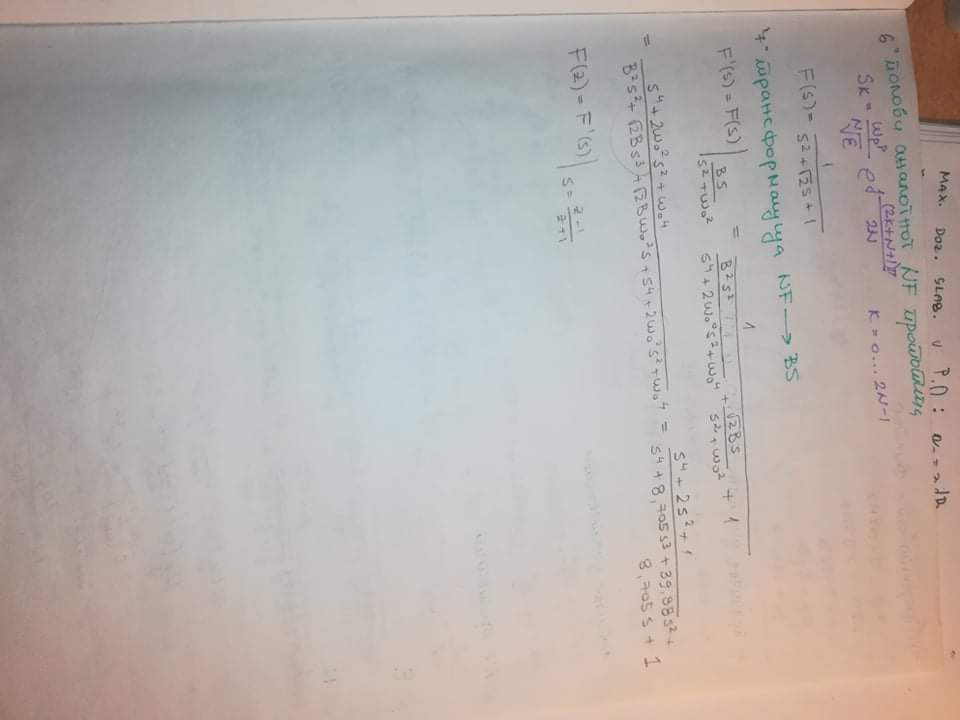 Мах. Доz. SLAB. U P.П: a_ = 2dB
6° Полови аналогної NF прототипа
S_K = ω_p^g / ^N√ε e^{j (2K+N+1)π / 2N} K = 0 ... 2N-1
F(s) = 1 / (s² + √2s + 1)
7° трансформација NF → BS
F'(s) = F(s) | Bs / (s² + ω₀²) = 1 / (B²s² / (s⁴ + 2ω₀²s² + ω₀⁴) + √2Bs / (s² + ω₀²) + 1)
= (s⁴ + 2ω₀²s² + ω₀⁴) / (B²s² + √2Bs³ + √2Bω₀²s + s⁴ + 2ω₀²s² + ω₀⁴) = (s⁴ + 2s² + 1) / (s⁴ + 8,705s³ + 39,88s² +
8,705s + 1)
F(z) = F'(s) | s = (z-1) / (z+1)